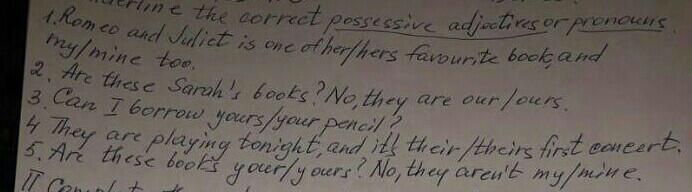 the correct possessive adjectives or pronouns.
1. Romeo and Juliet is one of her/hers favourite book, and
my/mine too.
2. Are these Sarah's books? No, they are our/ours.
3. Can I borrow yours/your pencil?
4 They are playing tonight, and it's their/theirs first concert.
5. Are these books your/yours? No, they aren't my/mine.
II